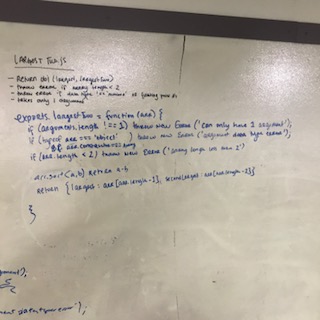 LARGEST Two.js
- Return obj (largest, largestTwo)
- throw error if array length < 2
- throw error if data type
- takes only 1 argument
exports.largestTwo = function (arr) {
if (arguments.length !== 1) throw new Error ('can only have 1 argument');
if (typeof arr === 'object' ) throw new Error ('argument data type error');
if (arr.length < 2) throw new Error ('array length less than 2')
arr.sort (a,b) return a-b
return { largest : arr[arr.length-1], secondLargest : arr[arr.length-2]}
}